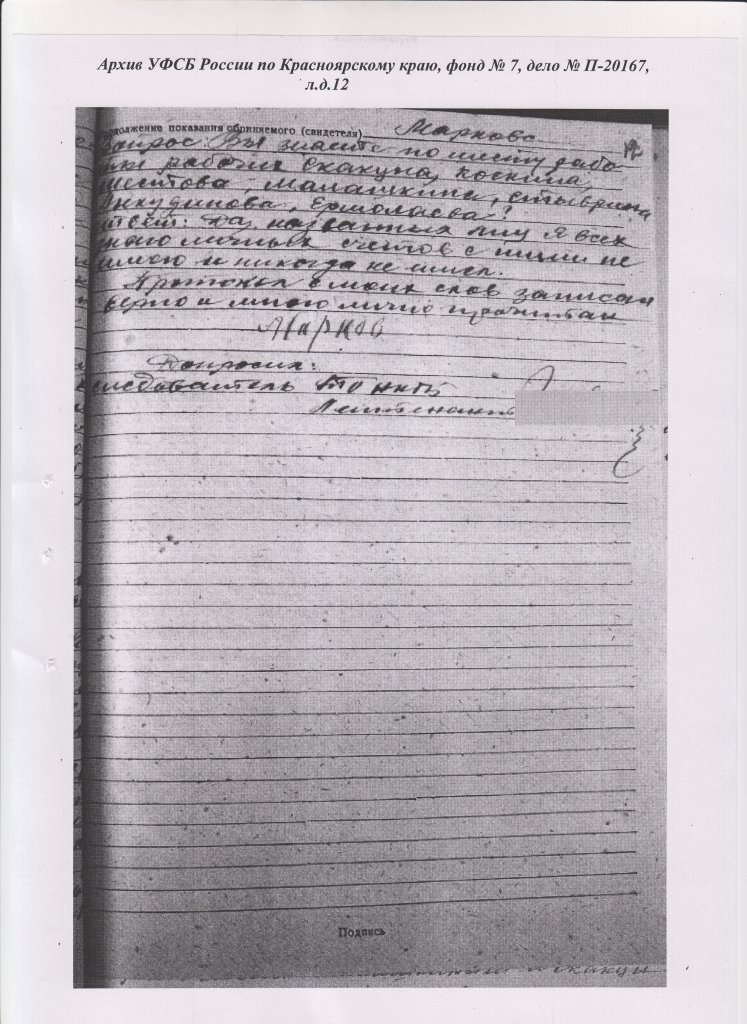 Архив УФСБ России по Красноярскому краю, фонд № 7, дело № П-20167,
л.д.12
одолжение показания обвиняемого (свидетеля) Маркова
12
Вопрос: Вы знаете по месту рабо
ты рабочих Скакуна, Коскина,
Шестова, Малашкина,
Анкудинова, Ермолаева?
твет: Да, названных лиц я всех
знаю личных счетов с ними не
имею и никогда не имел.
Протокол с моих слов записан
верно и мною лично прочитан
Марков
Допросил:
следователь ТО НКГБ
Лейтенант
Подпись
и скакун